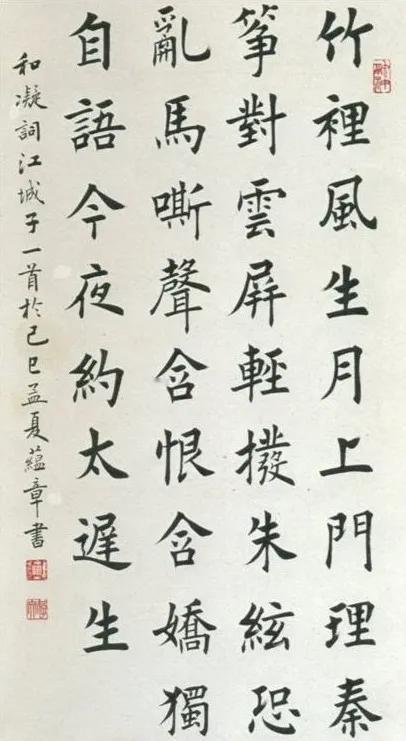 竹裡風生月上門理秦
箏對雲屏輕撥朱絃恐
亂馬嘶聲含恨含嬌獨
自語今夜約太遲生
和凝詞江城子一首於己巳孟夏蘊章書